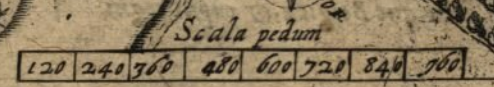 OR
Scala pedum
120 240 360 480 600 720 840 960